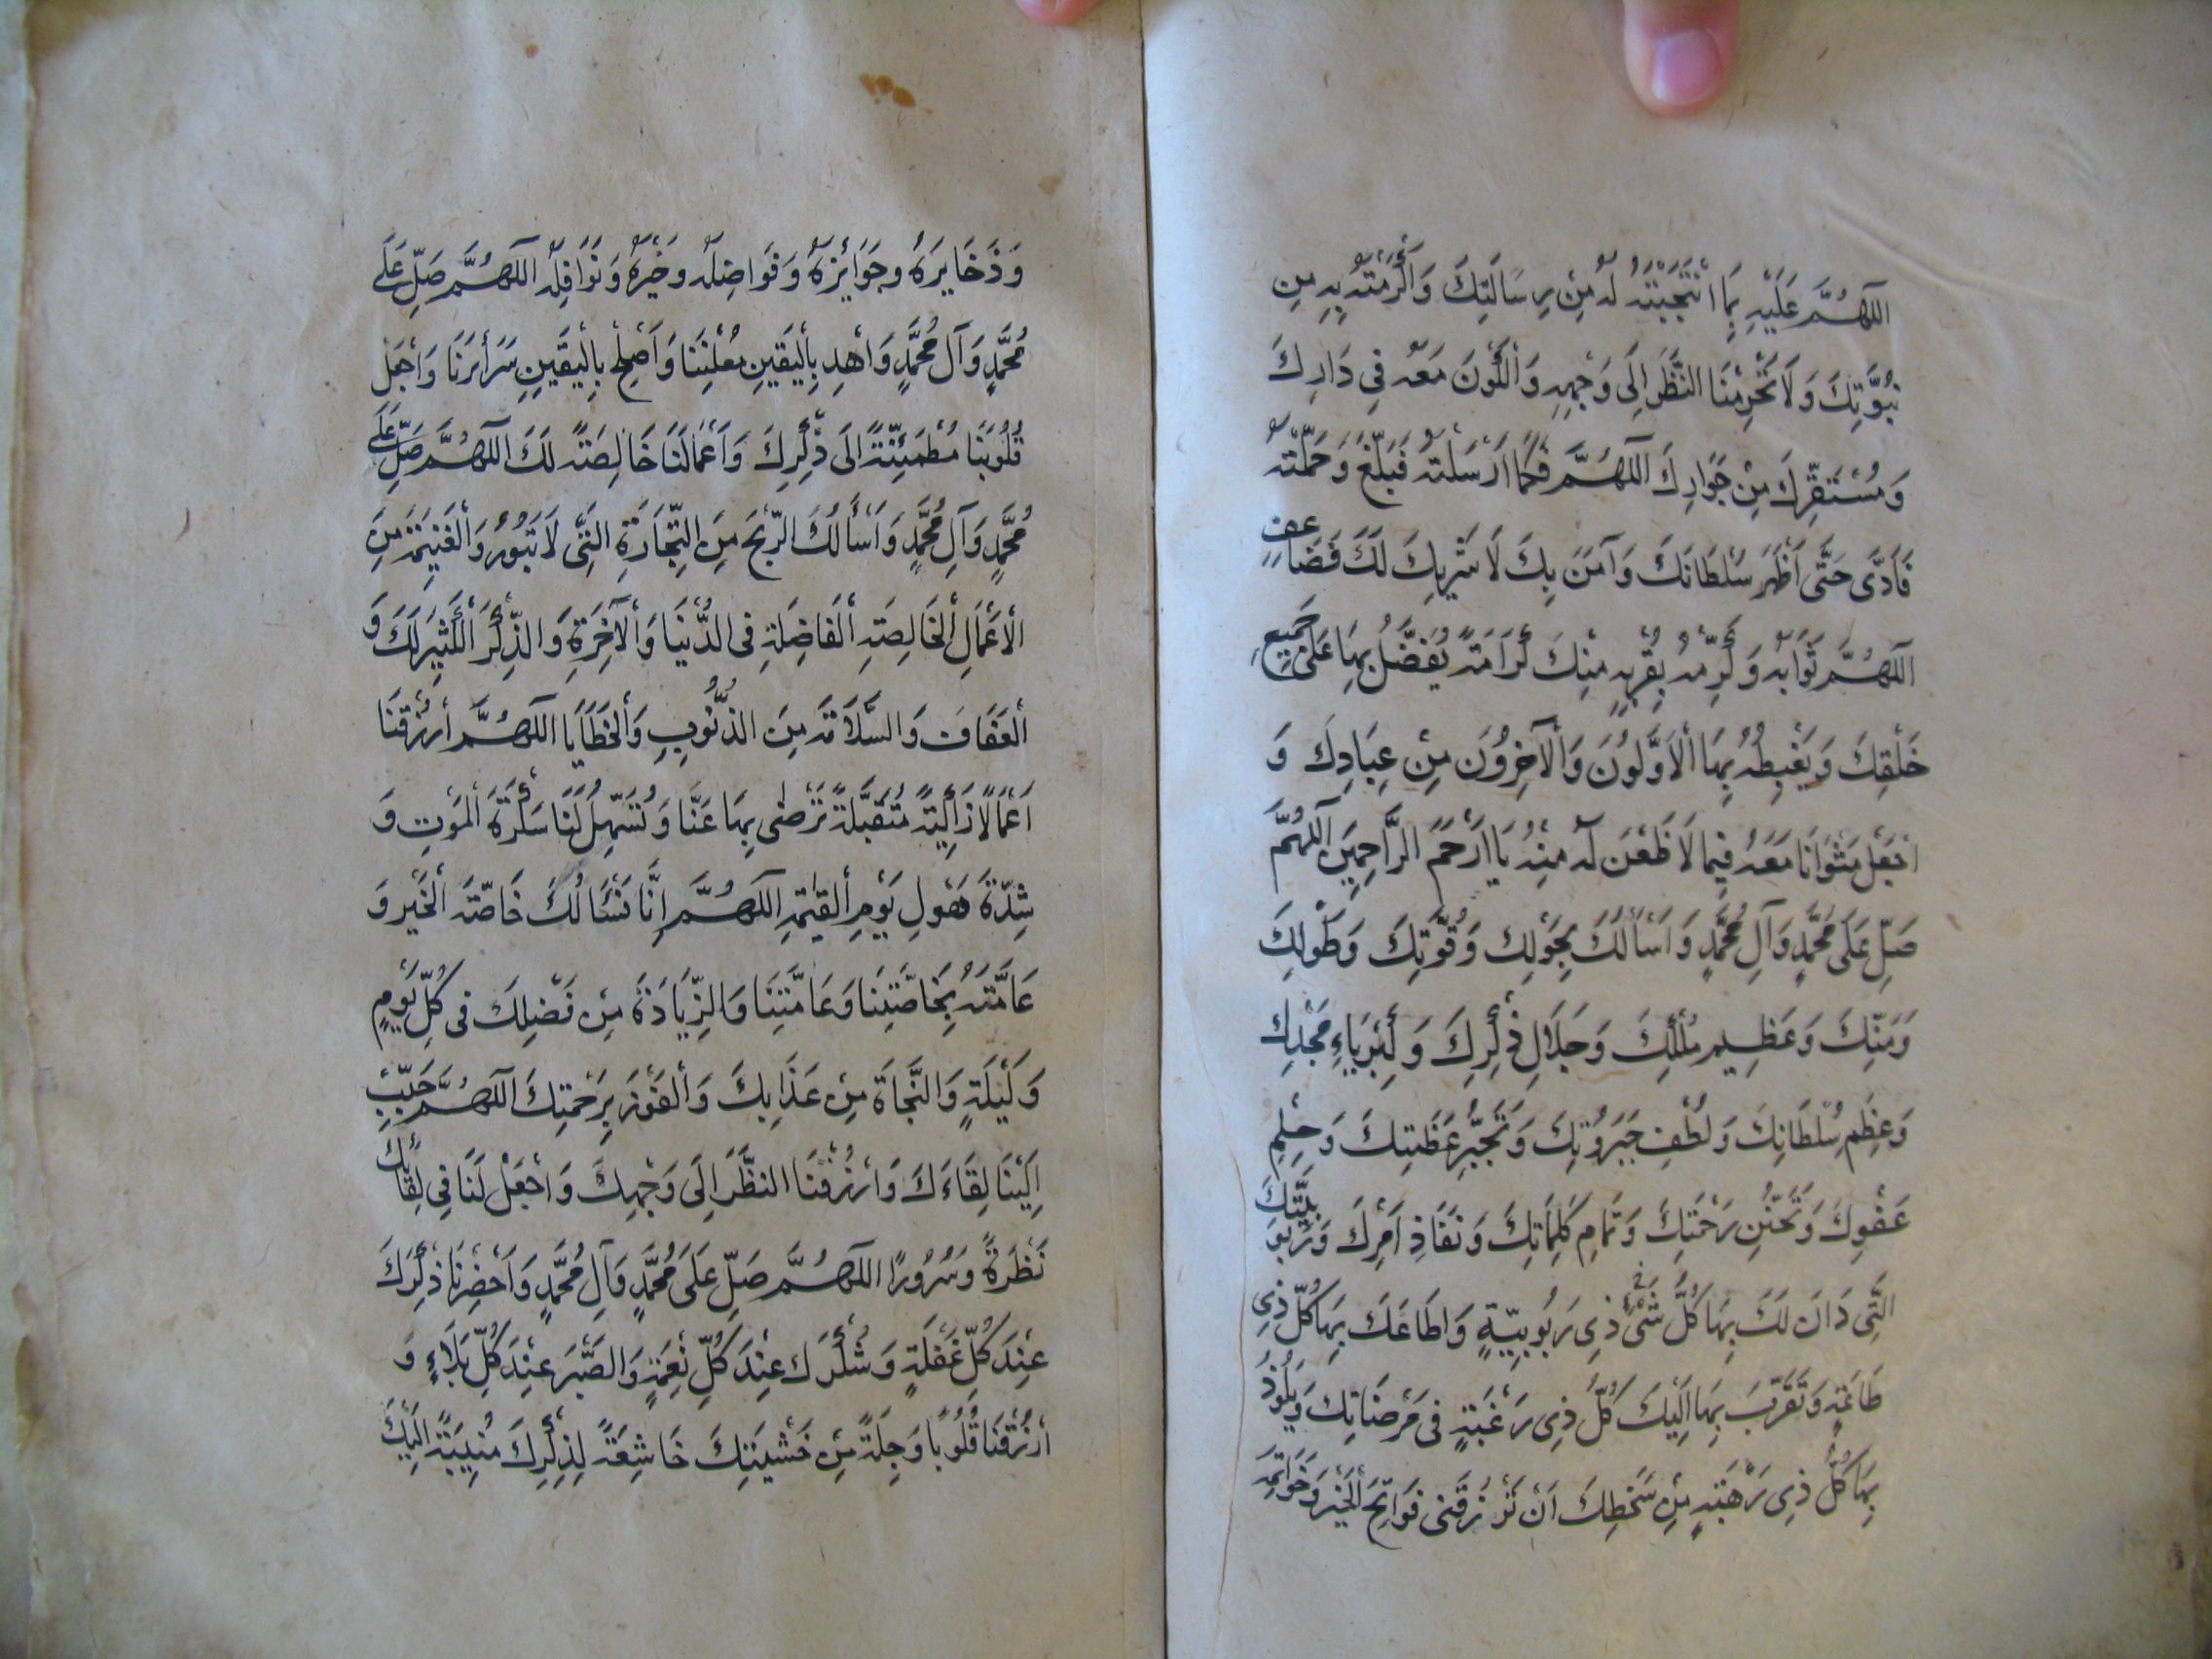 اَللّهُمَّ عَلَيْهِ بِمَا انْتَجَبْتَهُ لَهُ مِنْ رِسَالَتِكَ وَاَكْرَمْتَهُ بِهِ مِن
نُبُوَّتِكَ وَلَا تَحْرِمْنَا النَّظَرَ اِلَى وَجْهِهِ وَالْكَوْنَ مَعَهُ فِي دَارِكَ
وَمُسْتَقَرِّكَ مِنْ جَوَارِكَ اَللّهُمَّ فَكَمَا اَرْسَلْتَهُ فَبَلَّغَ وَحَمَّلْتَهُ
فَاَدَّى حَتَّى اَظْهَرَ سُلْطَانَكَ وَآمَنَ بِكَ لَا شَرِيكَ لَكَ فَضَاعِفِ
اَللّهُمَّ ثَوَابَهُ وَكَرِّمْهُ بِقُرْبِهِ مِنْكَ كَرَامَةً يَفْضُلُ بِهَا عَلَى جَمِيعِ
خَلْقِكَ وَيَغْبِطُهُ بِهَا الْاَوَّلُونَ وَالْآخِرُونَ مِنْ عِبَادِكَ وَ
اجْعَلْ مَثْوَانَا مَعَهُ فِيمَا لَا ظَعْنَ لَهُ مِنْهُ يَا اَرْحَمَ الرَّاحِمِيَن اَللّهُمَّ
صَلِّ عَلَى مُحَمَّدٍ وَآلِ مُحَمَّدٍ وَاَسْأَلُكَ بِحَوْلِكَ وَقُوَّتِكَ وَطَوْلِكَ
وَمَنِّكَ وَعَظِيمِ مُلْكِكَ وَجَلَالِ ذِكْرِكَ وَكِبْرِيَاءِ مَجْدِكَ
وَعِظَمِ سُلْطَانِكَ وَلُطْفِ جَبَرُوتِكَ وَتَجَبُّرِ عَظَمَتِكَ وَحِلْمِ
عَفْوِكَ وَتَحَنُّنِ رَحْمَتِكَ وَتَمَامِ كَلِمَاتِكَ وَنَفَاذِ اَمْرِكَ وَرُبُوبِيَّتِكَ
الَّتِى دَانَ لَكَ بِهَا كُلُّ ذِى رَبُوبِيَّةٍ وَاَطَاعَكَ بِهَا كُلُّ ذِى
طَاعَةٍ وَتَقَرَّبَ بِهَا اِلَيْكَ كُلُّ ذِى رَغْبَةٍ فى مَرْضَاتِكَ وَيَلُوذُ
بِهَا كُلُّ ذِى رَهْبَةٍ مِنْ سَخَطِكَ اَنْ تَرْزُقَنى فَوَاتِحَ الْخَيْرِ وَخَوَاتِمَهُ
وَذَخَايِرَهُ وَجَوَائِزَهُ وَفَوَاضِلَهُ وَخَيْرَهُ وَنَوَافِلَهُ اَللّهُمَّ صَلِّ عَلَى
مُحَمَّدٍ وَآلِ مُحَمَّدٍ وَاهْدِ بِالْيَقِينِ مُعْلَنَنَا وَاَصْلِحْ بِالْيَقِينِ سَرَائِرَنَا وَاجْعَلْ
قُلُوبَنَا مُطْمَئِنَّةً اِلَى ذِكْرِكَ وَاَعْمَالَنَا خَالِصَةً لَكَ اَللّهُمَّ صَلِّ عَلَى
مُحَمَّدٍ وَآلِ مُحَمَّدٍ وَاَسْأَلُكَ الرِّبْحَ مِنَ التِّجَارَةِ الَّتِى لَا تَبُورُ وَالْغَنِيمَةَ مِنَ
الْاَعْمَالِ الْخَالِصَةِ الْفَاضِلَةِ فى الدُّنْيَا وَالْآخِرَةِ وَالذِّكْرَ الْكَثِيرَ لَكَ وَ
الْعَفَافَ وَالسَّلَامَةَ مِنَ الذُّنُوبِ وَالْخَطَايَا اَللّهُمَّ ارْزُقْنَا
اَعْمَالًا زَاكِيَةً مُتَقَبَّلَةً تَرْضَى بِهَا عَنَّا وَتُسَهِّلُ لَنَا سَكْرَةَ الْمَوْتِ وَ
شِدَّةَ هَوْلِ يَوْمِ الْقِيمَةِ اَللّهُمَّ اِنَّا نَسْأَلُكَ خَاصَّةَ الْخَيْرِ وَ
عَامَّتَهُ بِخَاصَّتِنَا وَعَامَّتِنَا وَالزِّيَادَةَ مِنْ فَضْلِكَ فى كُلِّ يَوْمٍ
وَلَيْلَةٍ وَالنَّجَاةَ مِنْ عَذَابِكَ وَالْفَوْزَ بِرَحْمَتِكَ اَللّهُمَّ حَبِّبْ
اِلَيْنَا لِقَاءَكَ وَارْزُقْنَا النَّظَرَ اِلَى وَجْهِكَ وَاجْعَلْ لَنَا فِى لِقَائِكَ
نَظْرَةً وَسُرُورًا اَللّهُمَّ صَلِّ عَلَى مُحَمَّدٍ وَآلِ مُحَمَّدٍ وَاَحْضِرْنَا ذِكْرَكَ
عِنْدَ كُلِّ غَفْلَةٍ وَشُكْرَكَ عِنْدَ كُلِّ نِعْمَةٍ وَالصَّبْرَ عِنْدَ كُلِّ بَلَاءٍ وَ
ارْزُقْنَا قُلُوبًا وَجِلَةً مِنْ خَشْيَتِكَ خَاشِعَةً لِذِكْرِكَ مُنِيبَةً اِلَيْكَ